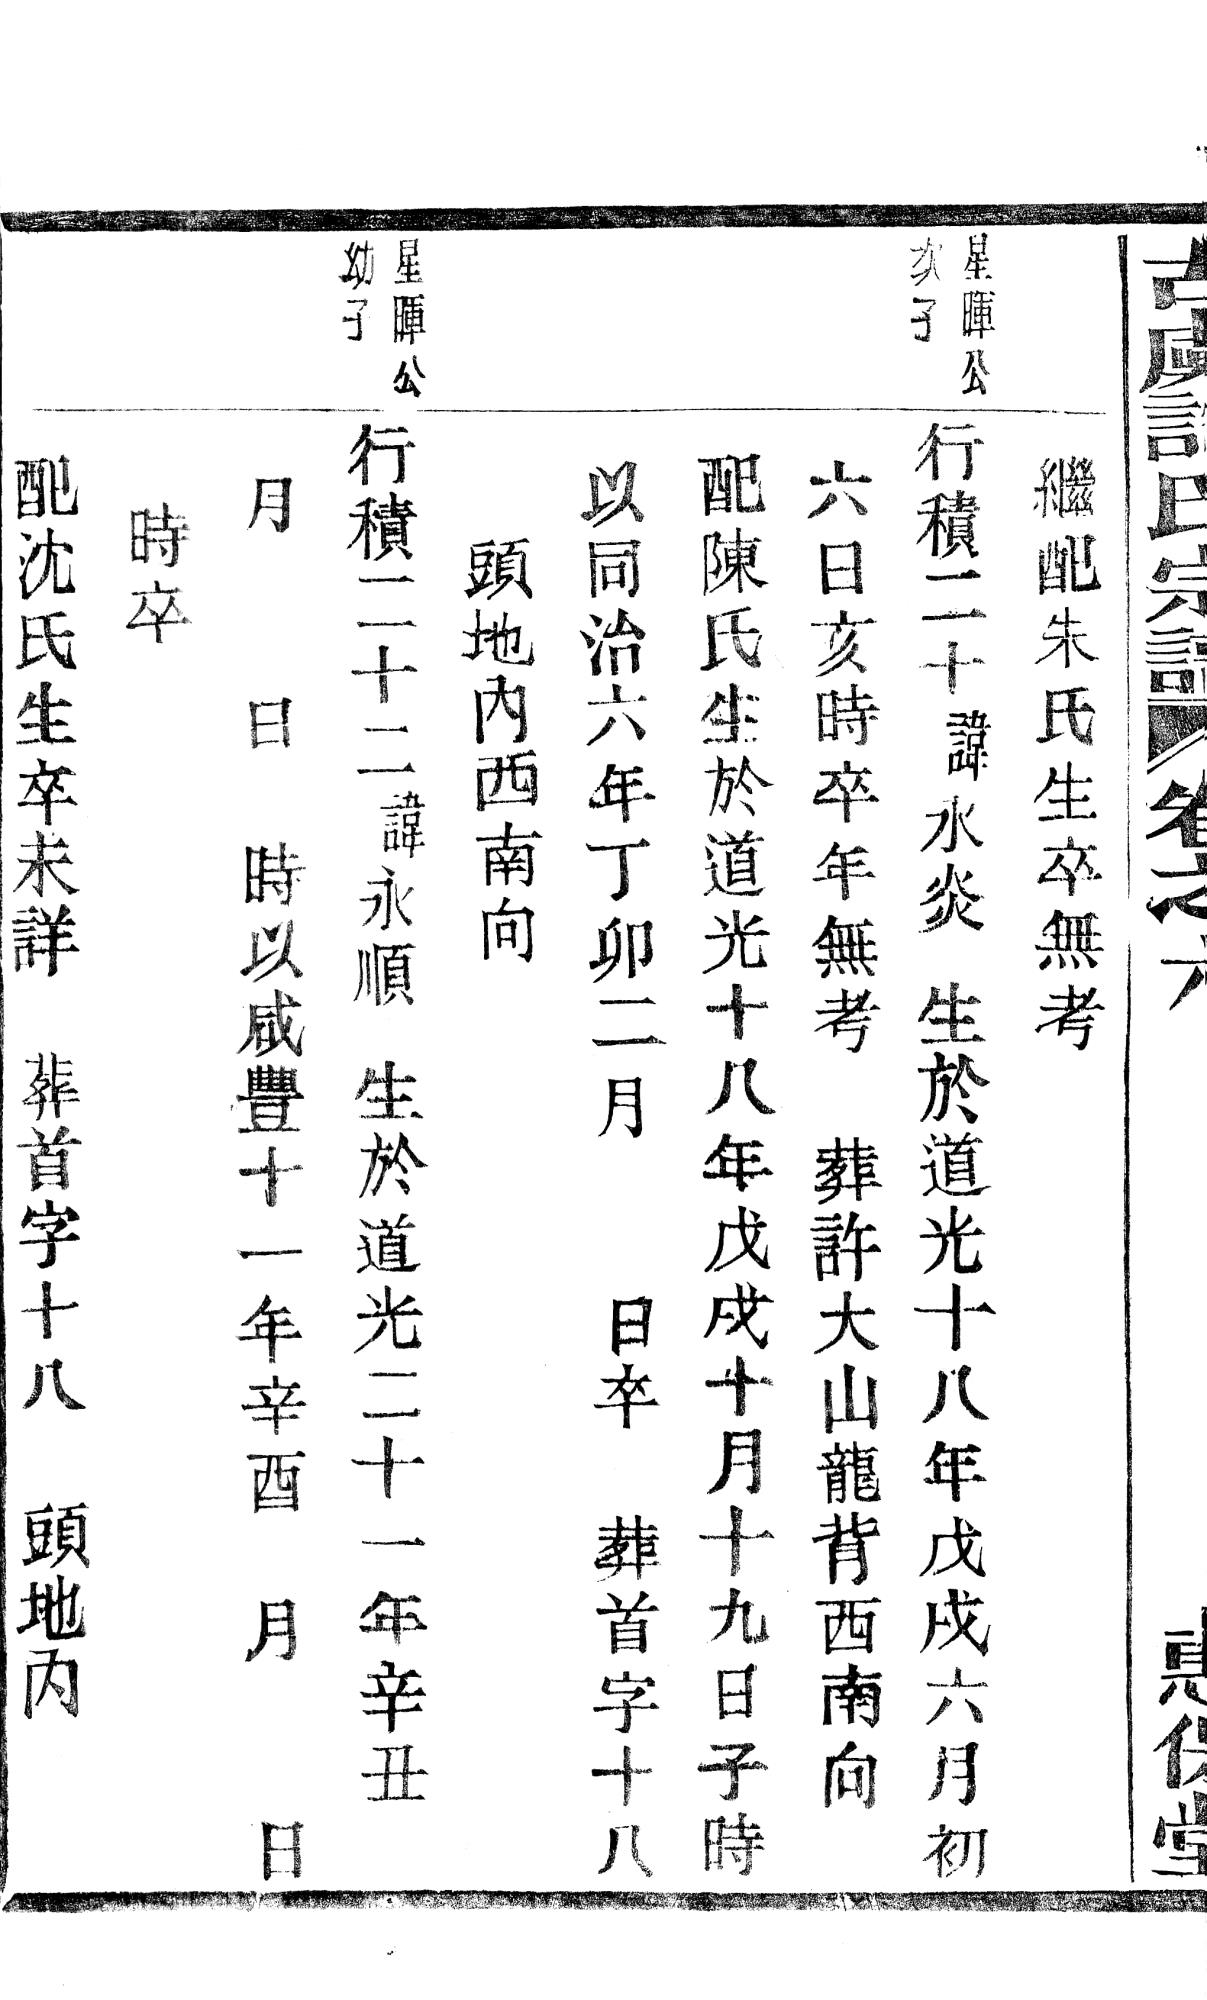 古虞許氏宗譜 卷之六 惠保堂
繼配朱氏生卒無考
星暉公次子
行積二十諱水炎 生於道光十八年戊戌六月初
六日亥時卒年無考 葬許大山龍背西南向
配陳氏生於道光十八年戊戌十月十九日子時
以同治六年丁卯二月 日卒 葬首字十八
頭地內西南向
星暉公幼子
行積二十二諱永順 生於道光二十一年辛丑
月 日 時以咸豐十一年辛酉 月 日
時卒
配沈氏生卒未詳 葬首字十八 頭地內